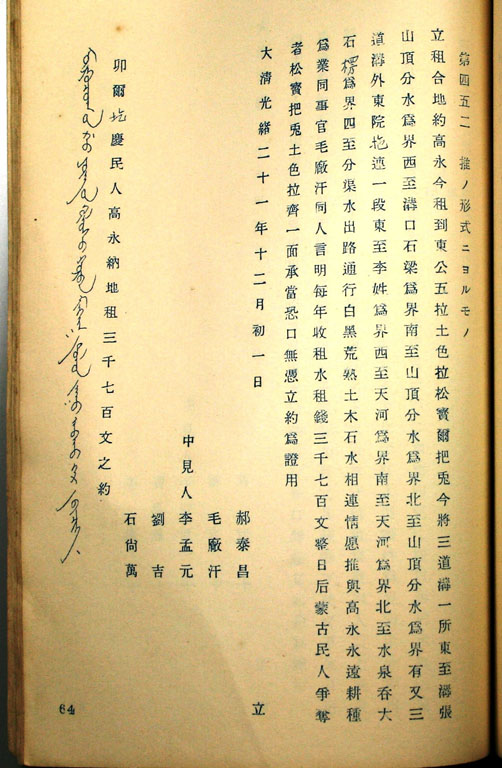 第四五二 推ノ形式ニヨルモノ
立租合地約高永今租到東公五拉土色拉松賓爾把兎今將三道溝一所東至溝張
山頂分水爲界西至溝口石梁爲界南至山頂分水爲界北至山頂分水爲界有又三
道溝外東院圪連一段東至李姓爲界西至天河爲界南至天河爲界北至水泉呑大
石楞爲界四至分渠水出路通行白黑荒熟土木石水相連情愿推與高永永遠耕種
爲業同事官毛廠汗同人言明每年收租水租錢三千七百文整日后蒙古民人爭奪
者松賓把兎土色拉齊一面承當恐口無憑立約爲證用
大清光緒二十一年十二月初一日
郝泰昌
毛廠汗
中見人 李孟元
劉吉
石尙萬
立
卯爾圪慶民人高永納地租三千七百文之約
64